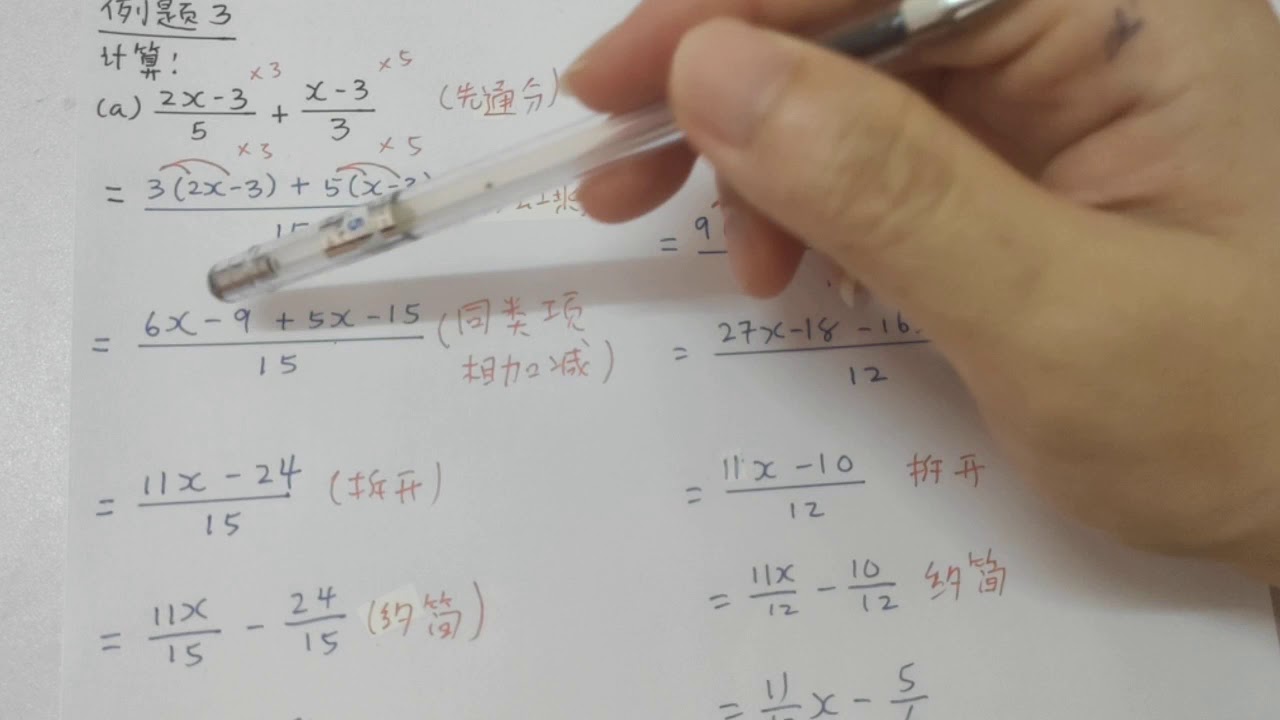 例题 3
计算:
×3 ×5
(a) 2x-3/5 + x-3/3 (先通分)
×3 ×5
= 3(2x-3) + 5(x-
15
= 6x-9+5x-15/15 (同类项
相加减)
= 11x-24/15 (拆开)
= 11x/15 - 24/15 (约简)
= 9
= 27x-18-16/12
= 11x-10/12 拆开
= 11x/12 - 10/12 约简
= 11/ x - 5/